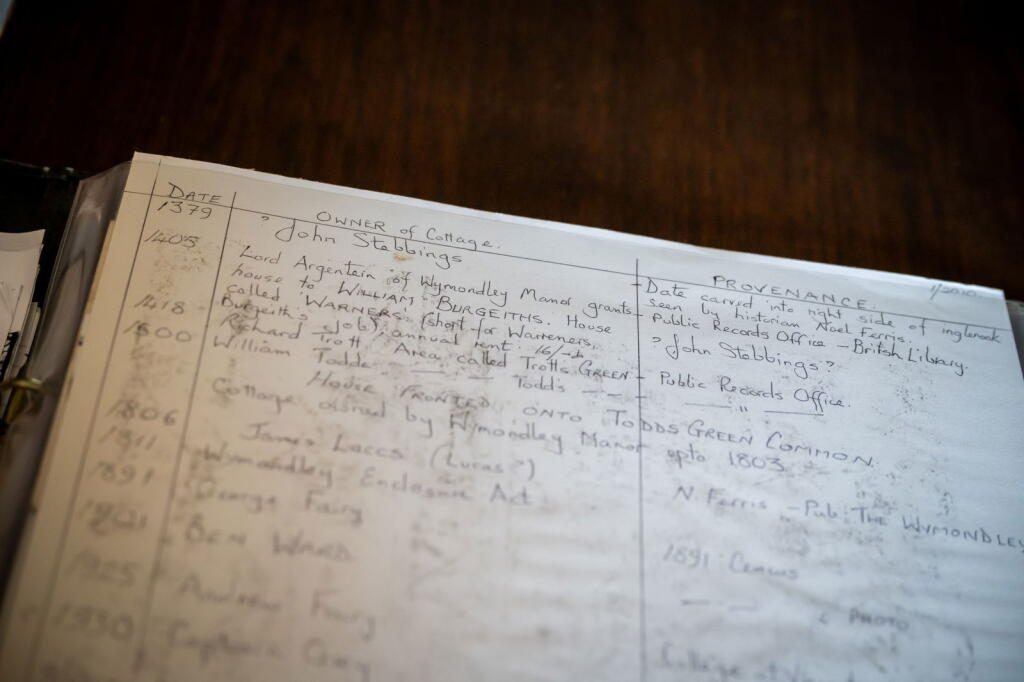 DATE OWNER of Cottage. PROVENANCE. 1/2010
1379 "John Stebbings Date carved into right side of inglenook
seen by historian Noel Ferris.
"John Stebbings"
1405 Lord Argentein of Wymondley Manor grants Public Records Office - British Library.
house to WILLIAM BURGEITHS. House
called 'WARNERS' (short for Warreners,
Burgeith's job), annual rent
1418 Richard Trott. Area called Trotts GREEN - Public Records Office.
1600 William Todde Todd's - "
HOUSE FRONTED ONTO TODDS GREEN COMMON.
Cottage owned by Wymondley Manor upto 1803
1806 James Laces (Lucas?)
1811 Wymondley Enclosure Act N. Ferris - Pub: THE WYMONDLEY
1891 George Fairy 1891 Census
BEN WARD
1925 Andrew Fairy & PHOTO
1930 Captain